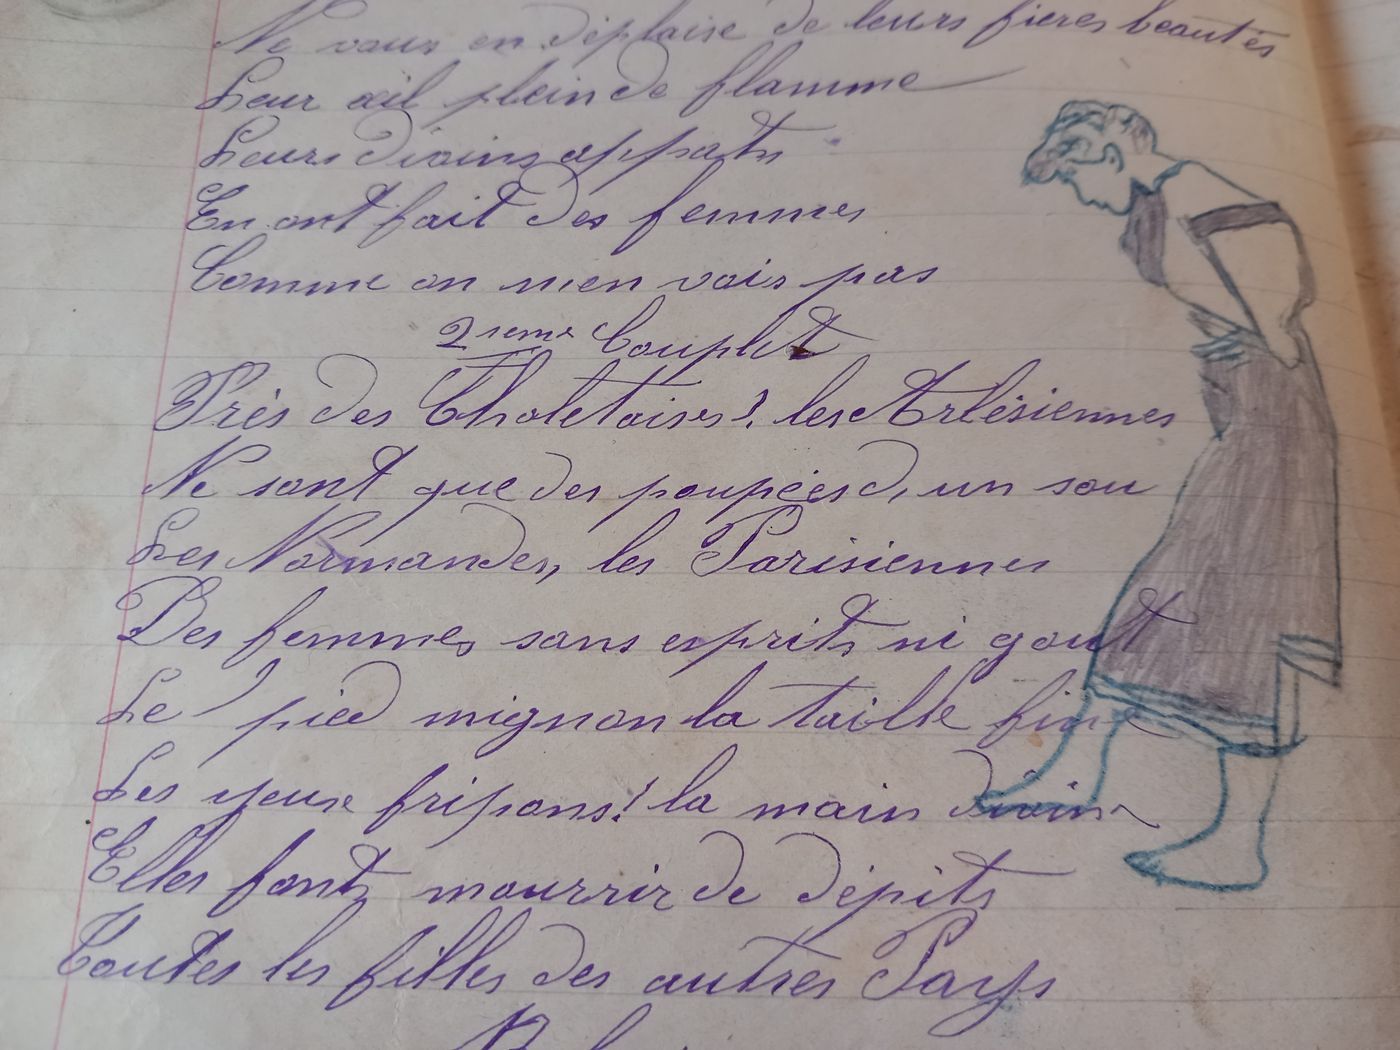 Ne vous en déplaise de leurs fières beautés
Leur œil plein de flamme
Leurs divins appats
En ont fait des femmes
Comme on n'en vois pas
2ieme Couplet
Près des Choletaises! les Arlésiennes
Ne sont que des poupées d, un sou
Les Normandes, les Parisiennes
Des femmes sans esprits ni gout
Le pied mignon la taille fine
Les yeux fripons! la main divine
Elles fonts mourrir de dépits
Toutes les filles des autres Pays